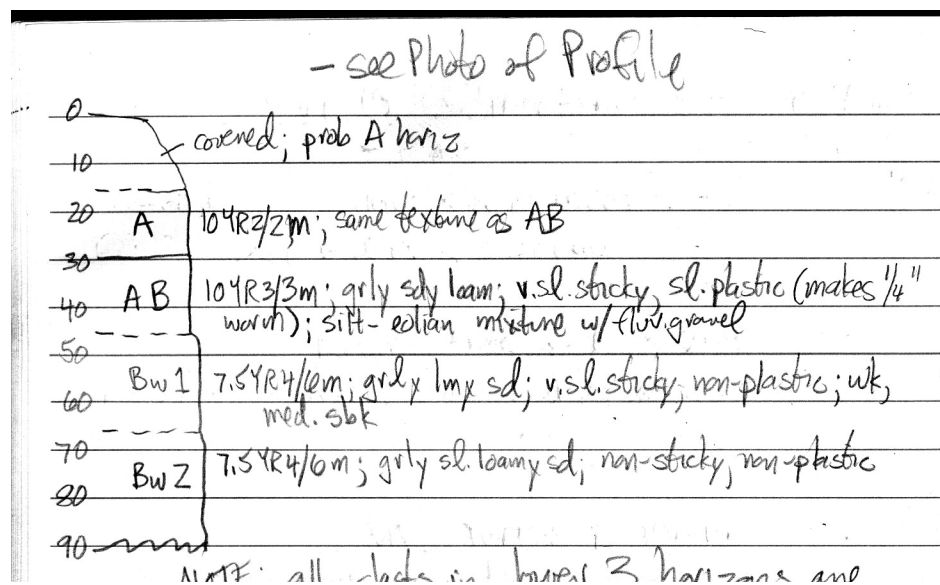 - see Photo of Profile
0
covered; prob A horiz
10
20
A 10YR2/2m; same texture as AB
30
AB 10YR3/3m; grly sdy loam; v.sl.sticky, sl.plastic (makes 1/4"
40
worm); silt-eolian mixture w/fluv.gravel
50
Bw1 7.5YR4/6m; grly lmy sd; v.sl.sticky, non-plastic; wk,
60
med. sbk
70
Bw2 7.5YR4/6m; grly sl.loamy sd; non-sticky, non-plastic
80
90
NOTE: all clasts in lower 3 horizons are